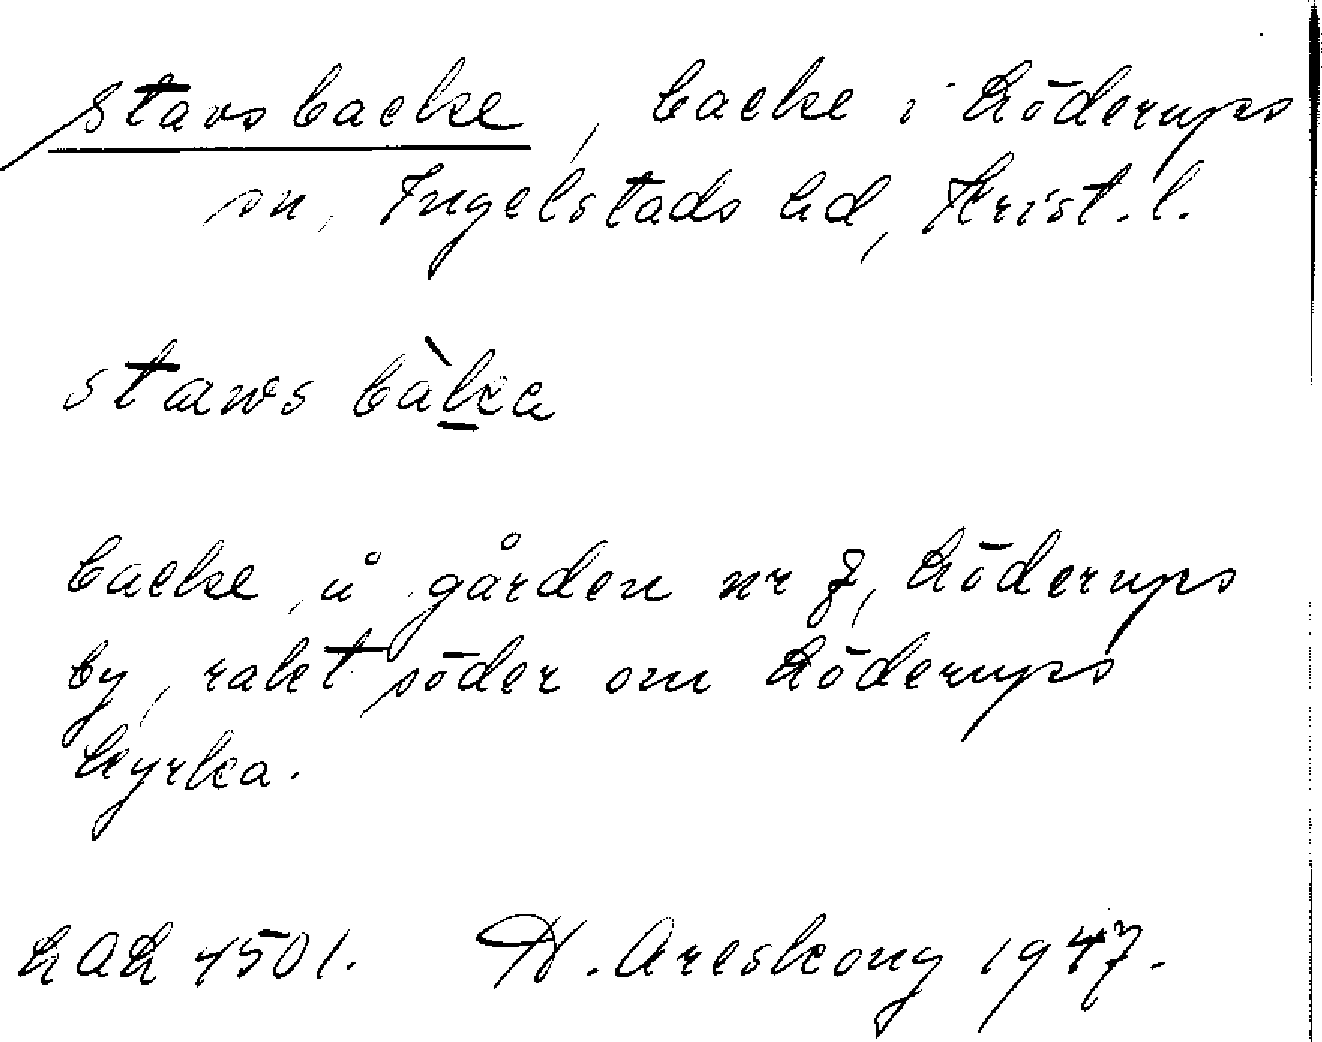 Stavsbacke, backe i Löderups
sn, Ingelstads hd, Krist. l.
stavs bàka
backe å gården nr 7, Löderups
by, rakt söder om Löderups
kyrka.
LAL 1501. H. Areskoug 1947.